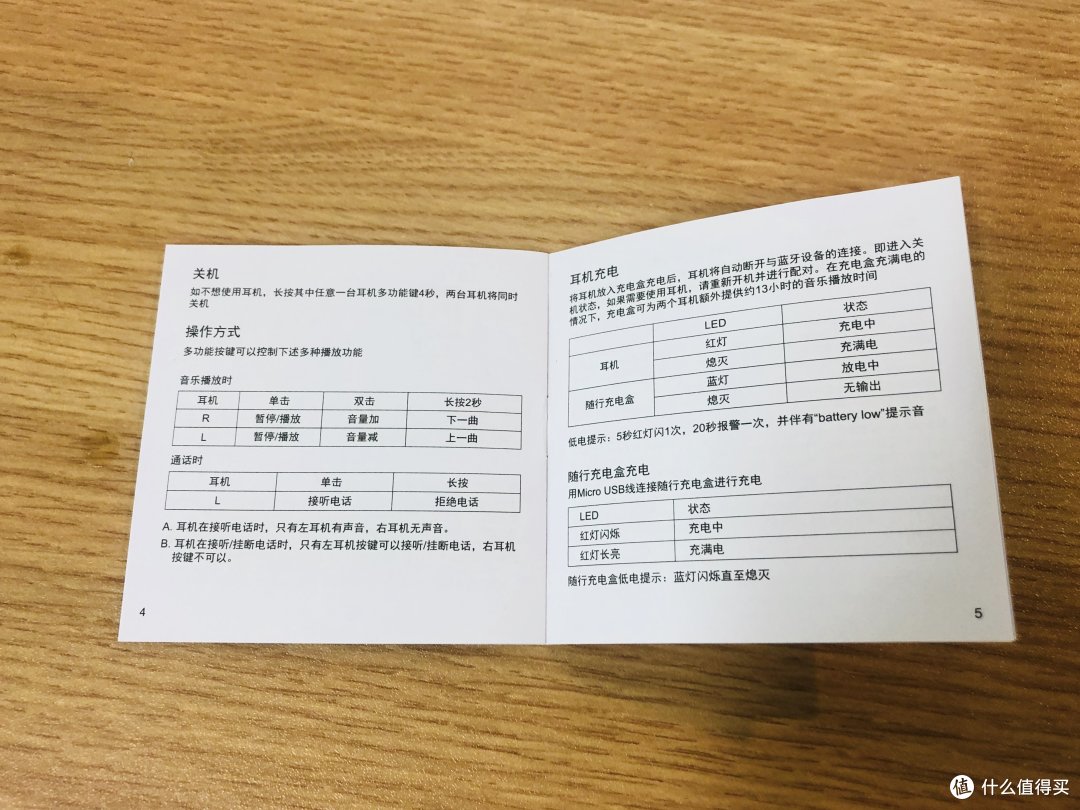 关机
如不想使用耳机，长按其中任意一台耳机多功能键4秒，两台耳机将同时
关机
操作方式
多功能按键可以控制下述多种播放功能
音乐播放时
耳机 单击 双击 长按2秒
R 暂停/播放 音量加 下一曲
L 暂停/播放 音量减 上一曲
通话时
耳机 单击 长按
L 接听电话 拒绝电话
A. 耳机在接听电话时，只有左耳机有声音，右耳机无声音。
B. 耳机在接听/挂断电话时，只有左耳机按键可以接听/挂断电话，右耳机
按键不可以。
4
耳机充电
将耳机放入充电盒充电后，耳机将自动断开与蓝牙设备的连接。即进入关
机状态，如果需要使用耳机，请重新开机并进行配对。在充电盒充满电的
情况下，充电盒可为两个耳机额外提供约13小时的音乐播放时间
LED 状态
耳机 红灯 充电中
熄灭 充满电
随行充电盒 蓝灯 放电中
熄灭 无输出
低电提示：5秒红灯闪1次，20秒报警一次，并伴有“battery low”提示音
随行充电盒充电
用Micro USB线连接随行充电盒进行充电
LED 状态
红灯闪烁 充电中
红灯长亮 充满电
随行充电盒低电提示：蓝灯闪烁直至熄灭
5
值 什么值得买